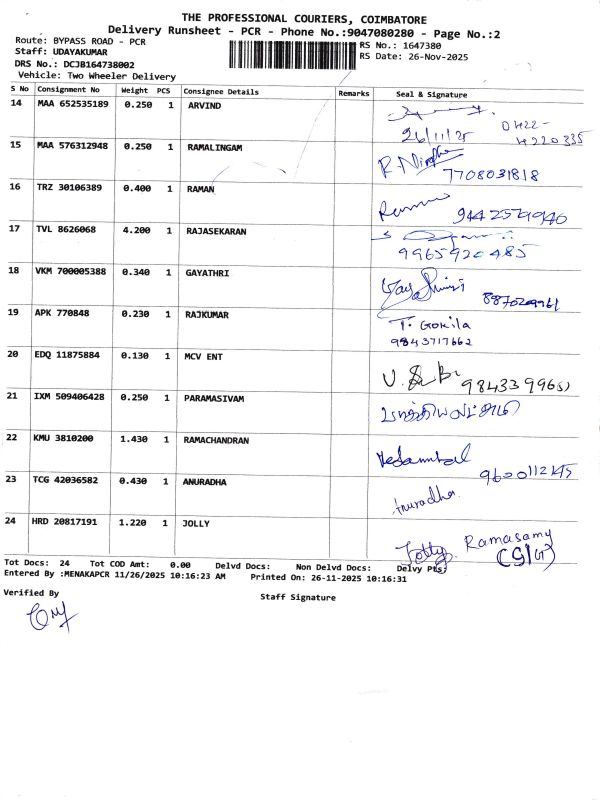 THE PROFESSIONAL COURIERS, COIMBATORE
Delivery Runsheet - PCR - Phone No.:9047080280 - Page No.:2
Route: BYPASS ROAD - PCR
Staff: UDAYAKUMAR
DRS No.: DCJB164738002
Vehicle: Two Wheeler Delivery
RS No.: 1647380
RS Date: 26-Nov-2025
S No Consignment No Weight PCS Consignee Details Remarks Seal & Signature
14 MAA 652535189 0.250 1 ARVIND
26/11/25 0422-
4220335
15 MAA 576312948 0.250 1 RAMALINGAM
7708031818
16 TRZ 30106389 0.400 1 RAMAN
9442579940
17 TVL 8626068 4.200 1 RAJASEKARAN
9965920485
18 VKM 700005388 0.340 1 GAYATHRI
19 APK 770848 0.230 1 RAJKUMAR
T. Gokila
9843717662
20 EDQ 11875884 0.130 1 MCV ENT
21 IXM 509406428 0.250 1 PARAMASIVAM
22 KMU 3810200 1.430 1 RAMACHANDRAN
23 TCG 42036582 0.430 1 ANURADHA
Anuradha
24 HRD 20817191 1.220 1 JOLLY
Jolly. Ramasamy
Tot Docs: 24 Tot COD Amt: 0.00 Delvd Docs: Non Delvd Docs: Delvy Pts:
Entered By :MENAKAPCR 11/26/2025 10:16:23 AM Printed On: 26-11-2025 10:16:31
Verified By
Staff Signature